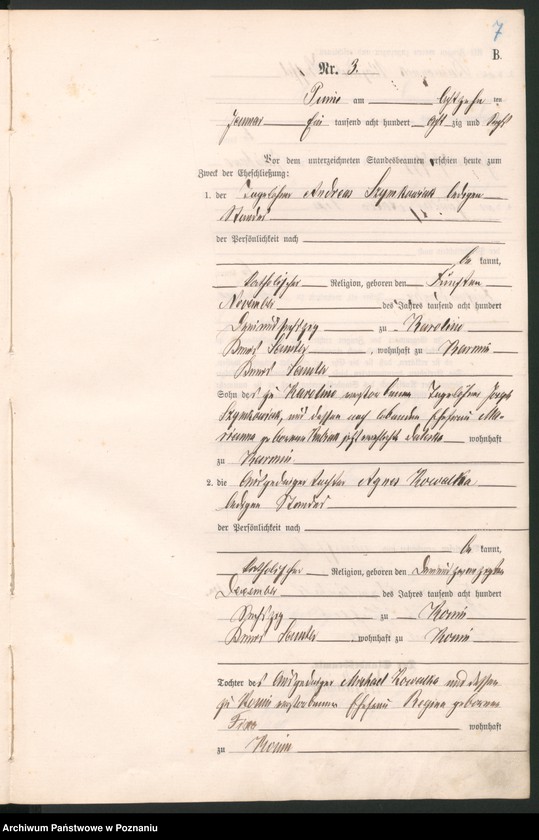 7
B.
Nr. 3.
Pinne am achtzehn ten
Januar Ein tausend acht hundert acht zig und sechs
Vor dem unterzeichneten Standesbeamten erschien heute zum
Zweck der Eheschließung:
1. der Tagelöhner Andreas Szymkowiak ledigen
Standes
der Persönlichkeit nach
be kannt,
katholischer Religion, geboren den fünften
November des Jahres tausend acht hundert
zu Karoline
Kreis Samter, wohnhaft zu
Kreis Samter
Sohn des zu Karoline verstorbenen Tagelöhner
Szymkowiak, und dessen noch lebenden Ehefrau Ma-
rianna geborenen jetzt wohnhaft
zu
2. die Ausgedinger Tochter Agnes Kowalka
ledigen Standes
der Persönlichkeit nach
be kannt,
katholischer Religion, geboren den
Dezember des Jahres tausend acht hundert
sechszig zu Konin
Kreis Samter, wohnhaft zu Konin
Tochter des Ausgedinger Michael Kowalka und dessen
zu Konin verstorbenen Ehefrau Regina geborenen
wohnhaft
zu Konin
Archiwum Państwowe w Poznaniu